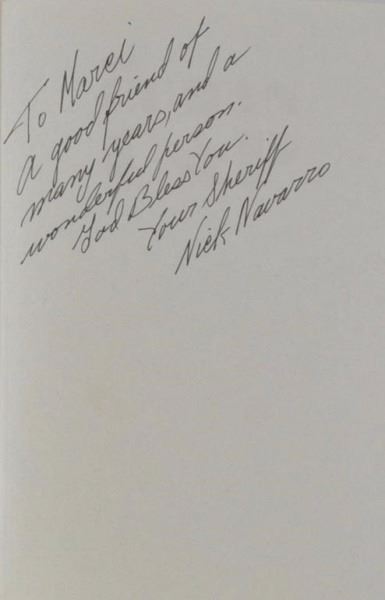 To Marci
A good friend of
many years, and a
wonderful person.
God Bless You.
Your Sheriff
Nick Navarro